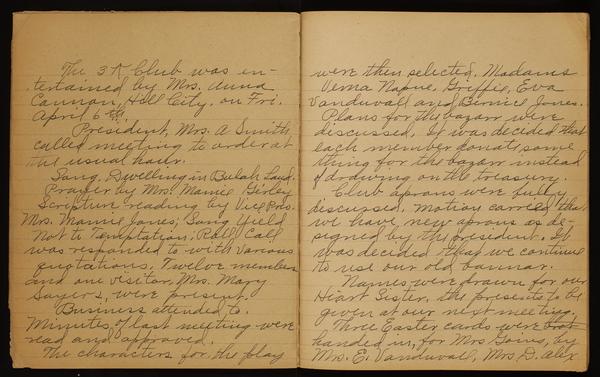 The 3 K Club was en-
tertained by Mrs. Anna
Cannon, Hill City, on Fri.
April 6th.
President, Mrs. A Smith
called meeting to order at
the usual hour.
Song, Dwelling in Beulah Land.
Prayer by Mrs. Mamie Girley
Scripture reading by Vice Pres.
Mrs. Mannie Jones; Song Yield
Not to Temptation. Roll Call
was responded to with various
quotations. Twelve members
and one visitor, Mrs. Mary
Sayers, were present.
Business attended to.
Minutes of last meeting were
read and approved.
The characters for the play
were then selected, Madams
Verna Napue, Griffie, Eva
Vanduvall and Bernice Jones.
Plans for the bazarr were
discussed. It was decided that
each member donate some
thing for the bazarr instead
of drawing on the treasury.
Club aprons were fully
discussed. Motion carried that
we have new aprons as de-
signed by the president. It
was decided that we continue
to use our old bannar.
Names were drawn for our
Heart Sister, the presents to be
given at our next meeting.
Three Easter cards were
handed in, for Mrs Goins, by
Mrs. E. Vanduvall, Mrs D. Alex